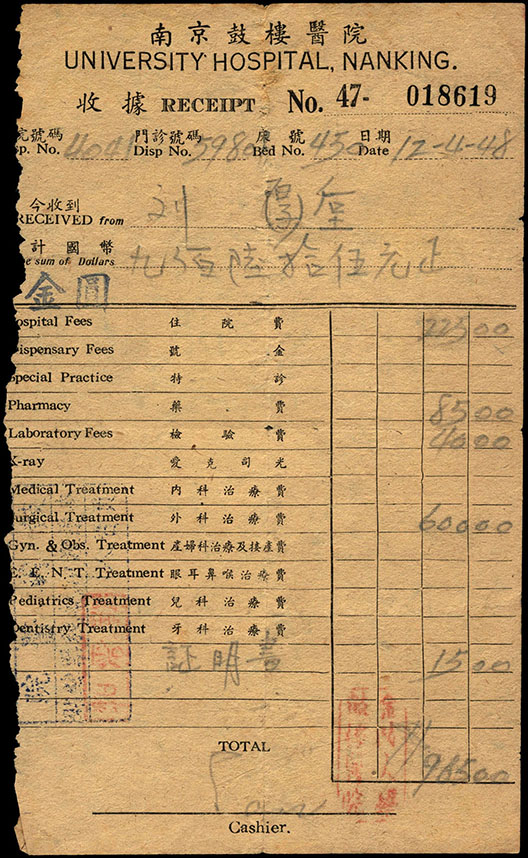 南京鼓樓醫院
UNIVERSITY HOSPITAL, NANKING.
收據 RECEIPT No. 47- 018619
院號碼 門診號碼 床號 日期
sp. No. 4041 Disp No. 5980 Bed No. 450 Date 12-4-48
今收到 刘厚奎
RECEIVED from
計國幣 九佰陸拾伍元正
he sum of Dollars
金圓
Hospital Fees 住院費 22500
Dispensary Fees 號金
Special Practice 特診
Pharmacy 藥費 8500
Laboratory Fees 檢驗費 4000
X-ray 愛克司光
Medical Treatment 內科治療費
Surgical Treatment 外科治療費 60000
Gyn. & Obs. Treatment 產婦科治療及接產費
E. E. N. T. Treatment 眼耳鼻喉治療費
Pediatrics Treatment 兒科治療費
Dentistry Treatment 牙科治療費
証明書 1500
TOTAL 96500
Cashier.